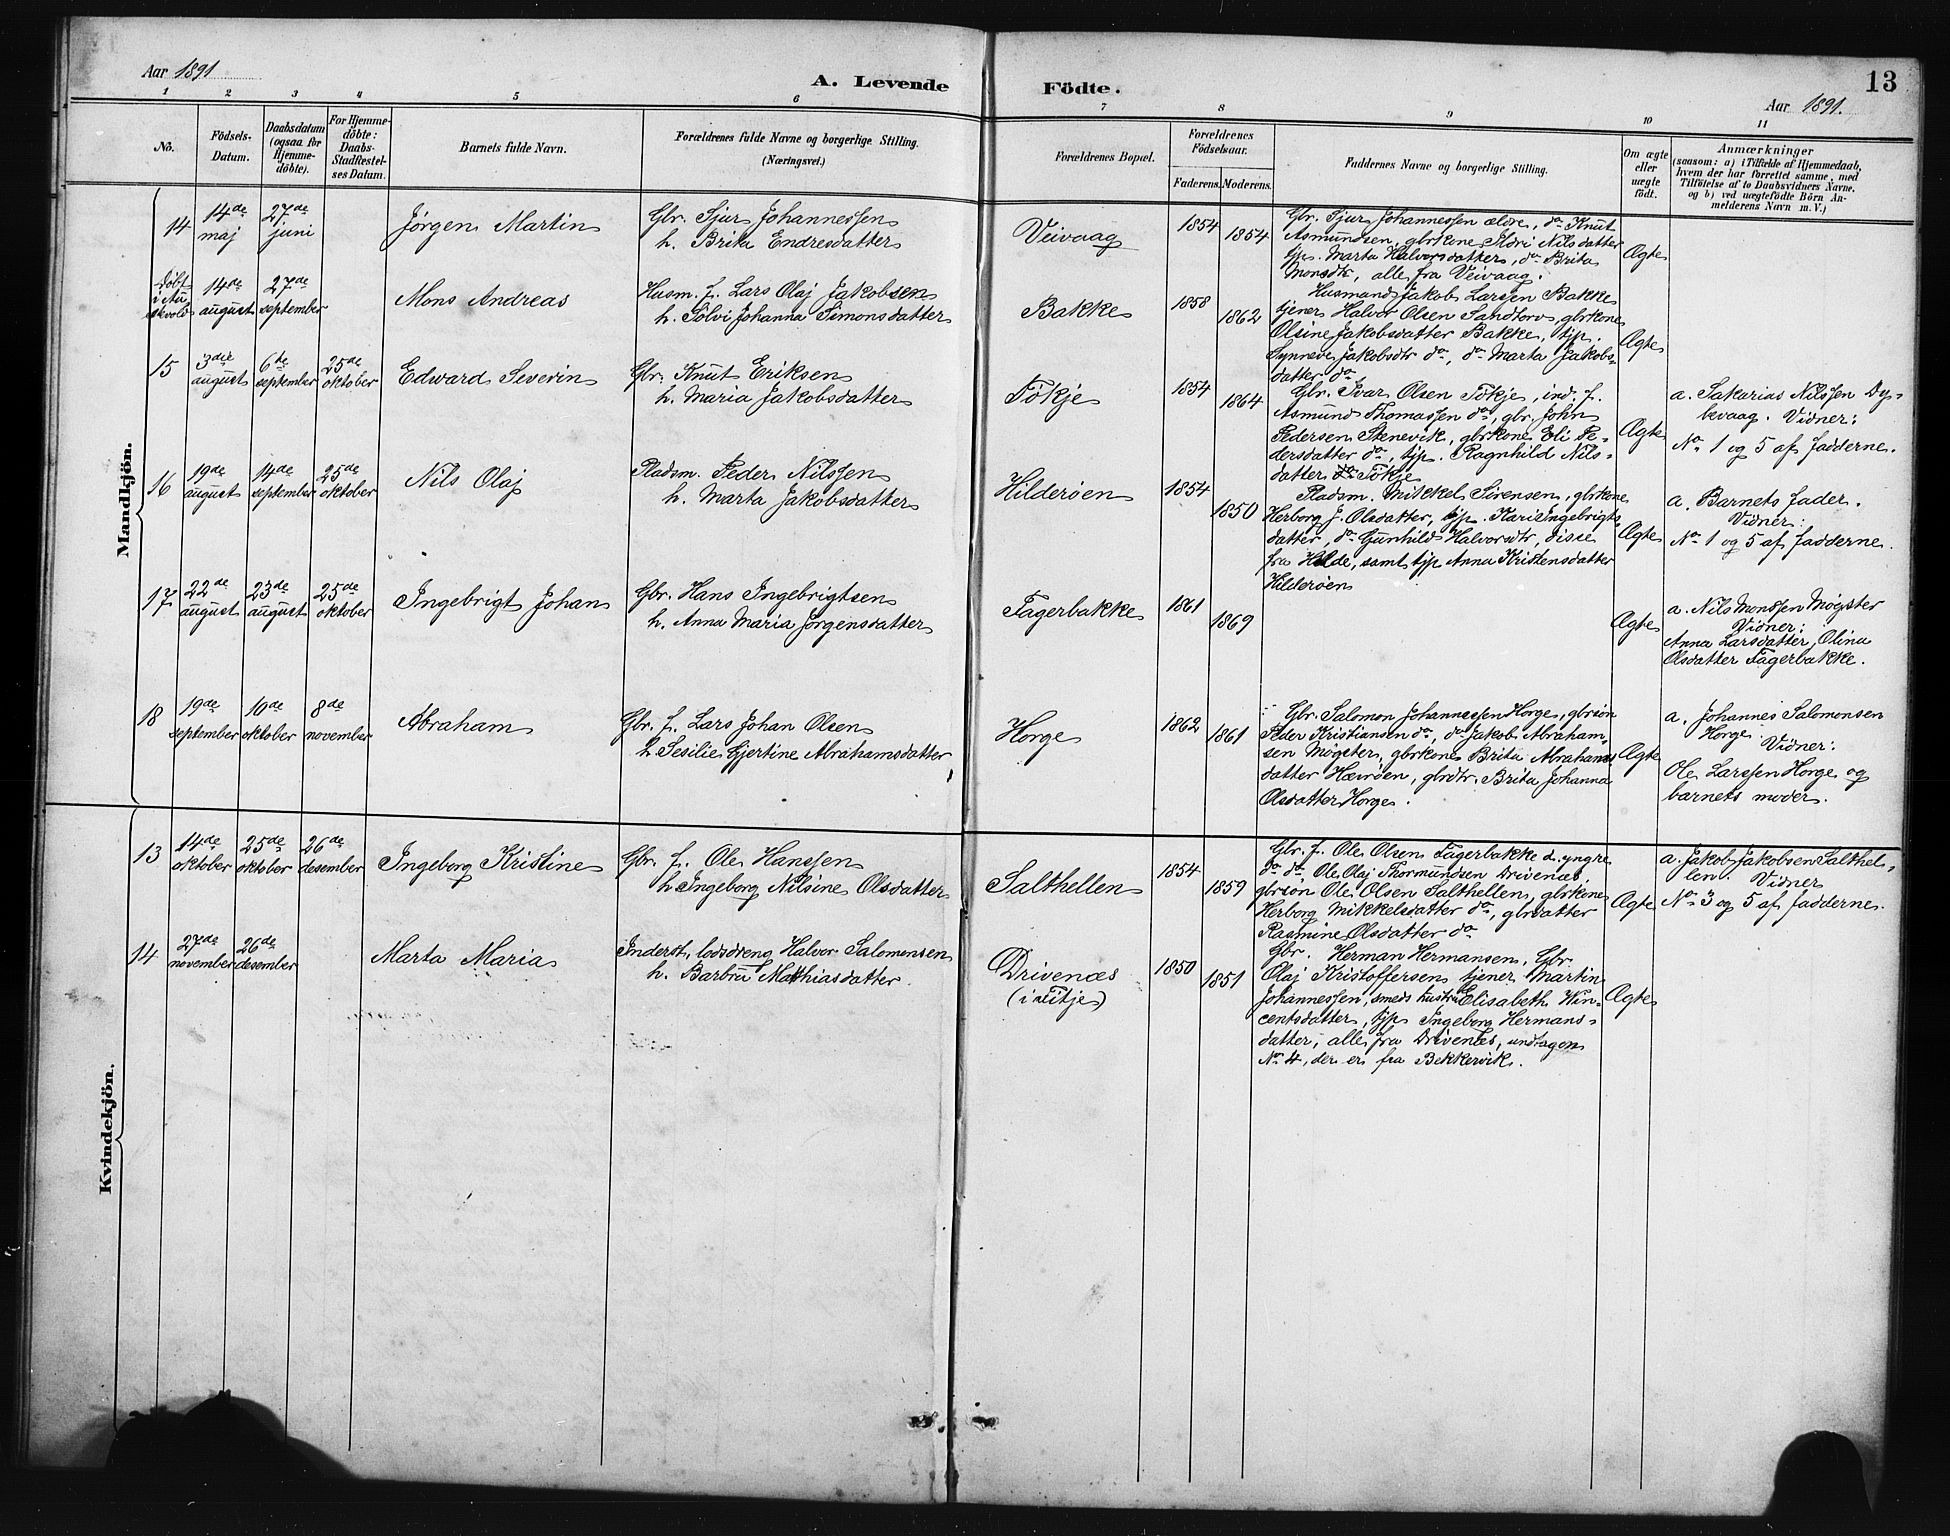 Aar 1891
A. Levende Födte.
13
Aar 1891.
1 2 3 4 5 6 7 8 9 10 11
No.
Födsels-
Datum.
Daabsdatum
(ogsaa for
Hjemme-
döbte).
For Hjemme-
döbte:
Daabs-
Stadfæstel-
ses Datum.
Barnets fulde Navn.
Forældrenes fulde Navne og borgerlige Stilling.
(Næringsvei.)
Forældrenes Bopæl.
Forældrenes
Födselsaar.
Faderens. Moderens.
Faddernes Navne og borgerlige Stilling.
Om ægte
eller
uægte
födt.
Anmærkninger
(saasom: a) i Tilfælde af Hjemmedaab,
hvem der har forrettet samme, med
Tilföielse af to Daabsvidners Navne.
og b) ved uægtefödte Börn An-
melderens Navn m. V.)
Mandkjön.
14
14de
maj
27de
juni
Jørgen Martin
Gbr. Sjur Johannessen
h. Brita Endresdatter
Veivaag
1854
1854
Gbr. Sjur Johannessen ældre, do Knut
Asmundsen, gbrkone Ildri Nilsdatter
tjp. Marta Halvorsdatter, do Brita
Monsdtr, alle fra Veivaag.
Ægte
Døbt
i Au
stevold
14de
august
27de
september
Mons Andreas
Husm. f. Lars Olaj Jakobsen
h. Sølvi Johanna Simonsdatter
Bakke
1858
1862
Husmand Jakob Larsen Bakke
tjener Halvor Olsen Sandtorv, gbrkone
Olsine Jakobsdatter Bakke, tjp.
Synneve Jakobsdtr do, do Marta Jakobs-
datter do
Ægte
15
3die
august
6te
september
25de
oktober
Edward Severin
Gbr. Knut Eriksen
h. Maria Jakobsdatter
Tökje
1854
1864
Gbr. Ivar Olsen Tökje, ind. f.
Asmund Thomassen do, gbr. John
Pedersen Stenevik, gbrkone Eli Pe-
dersdatter do, tjp. Ragnhild Nils-
datter do Tökje
Ægte
a. Sakarias Nilssen Dy-
kevaag. Vidner:
No 1 og 5 af fadderne.
16
19de
august
14de
september
25de
oktober
Nils Olaj
Pladsm. Peder Nilssen
h. Marta Jakobsdatter
Hilderøen
1854
1850
Pladsm. Mikkel Sørensen, gbrkone
Herborg J. Olsdatter, tjp. Kari Ingebrigts-
datter, do Gunhild Halvorsdtr, disse
fra Hilde, samt tjp Anna Kristensdatter
Hilderøen
Ægte
a. Barnets fader.
Vidner:
No 1 og 5 af fadderne.
17
22de
august
23de
august
25de
oktober
Ingebrigt Johan
Gbr. Hans Ingebrigtsen
h. Anna Maria Jørgensdatter
Fagerbakke
1861
1869
Ægte
a. Nils Monssen Møgster
Vidner:
Anna Larsdatter, Olina
Olsdatter Fagerbakke.
18
19de
september
10de
oktober
8de
november
Abraham
Gbr. f. Lars Johan Olsen
h Sesilie Gjertine Abrahamsdatter
Horge
1862
1861
Gbr. Salomon Johannessen Horge, gbrsøn
Peder Kristiansen do, do Jakob Abraham-
sen Møgster, gbrkone Brita Abrahams-
datter Hærøen, gbrdtr. Brita Johanna
Olsdatter Horge.
Ægte
a. Johannes Salomonsen
Horge. Vidner:
Ole Larssen Horge og
barnets moder.
Kvindekjön.
13
14de
oktober
25de
oktober
26de
desember
Ingeborg Kristine
Gbr. f. Ole Hanssen
h Ingeborg Nilsine Olsdatter
Salthellen
1854
1859
Gbr. f. Ole Olsen Fagerbakke d. yngre
do do Ole Olaj Thormundsen Drivenæs,
gbrsøn Ole Olsen Salthellen, gbrkone
Herborg Mikkelsdatter do, gbrdatter
Rasmine Olsdatter do
Ægte
a. Jakob Jakobsen Salthel-
len. Vidner
No 3 og 5 af fadderne.
14
27de
november
26de
desember
Marta Maria
Inderst, lodsdreng Halvor Salomonsen
h. Barbru Matthiasdatter.
Drivenæs
(i Fitje)
1850
1851
Gbr. Herman Hermansen, Gbr
Olaj Kristoffersen, tjener Martin
Johannessen, smeds hustru Elisabeth Win-
centsdatter, tjp Ingeborg Hermans-
datter, alle fra Drivenæs, undtagen
No 4, der er fra Bekkervik.
Ægte